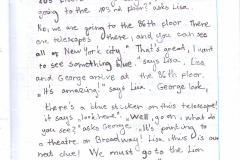 going to the 103rd floor?" asks Lisa.
No, we are going to the 86th floor. There
are telescopes there, and you can see
all of New York city." That's great, I want
to see something blue," says Lisa. Lisa
and George arrive at the 86th floor.
"It's amazing!" says Lisa. George look,
there's a blue sticker on this telescope!
it says "look here". "Well, go on, what do
you see?" asks George. "It's pointing to
a theatre on Broadway! Lisa, this is our
next clue! We must go to the Lion